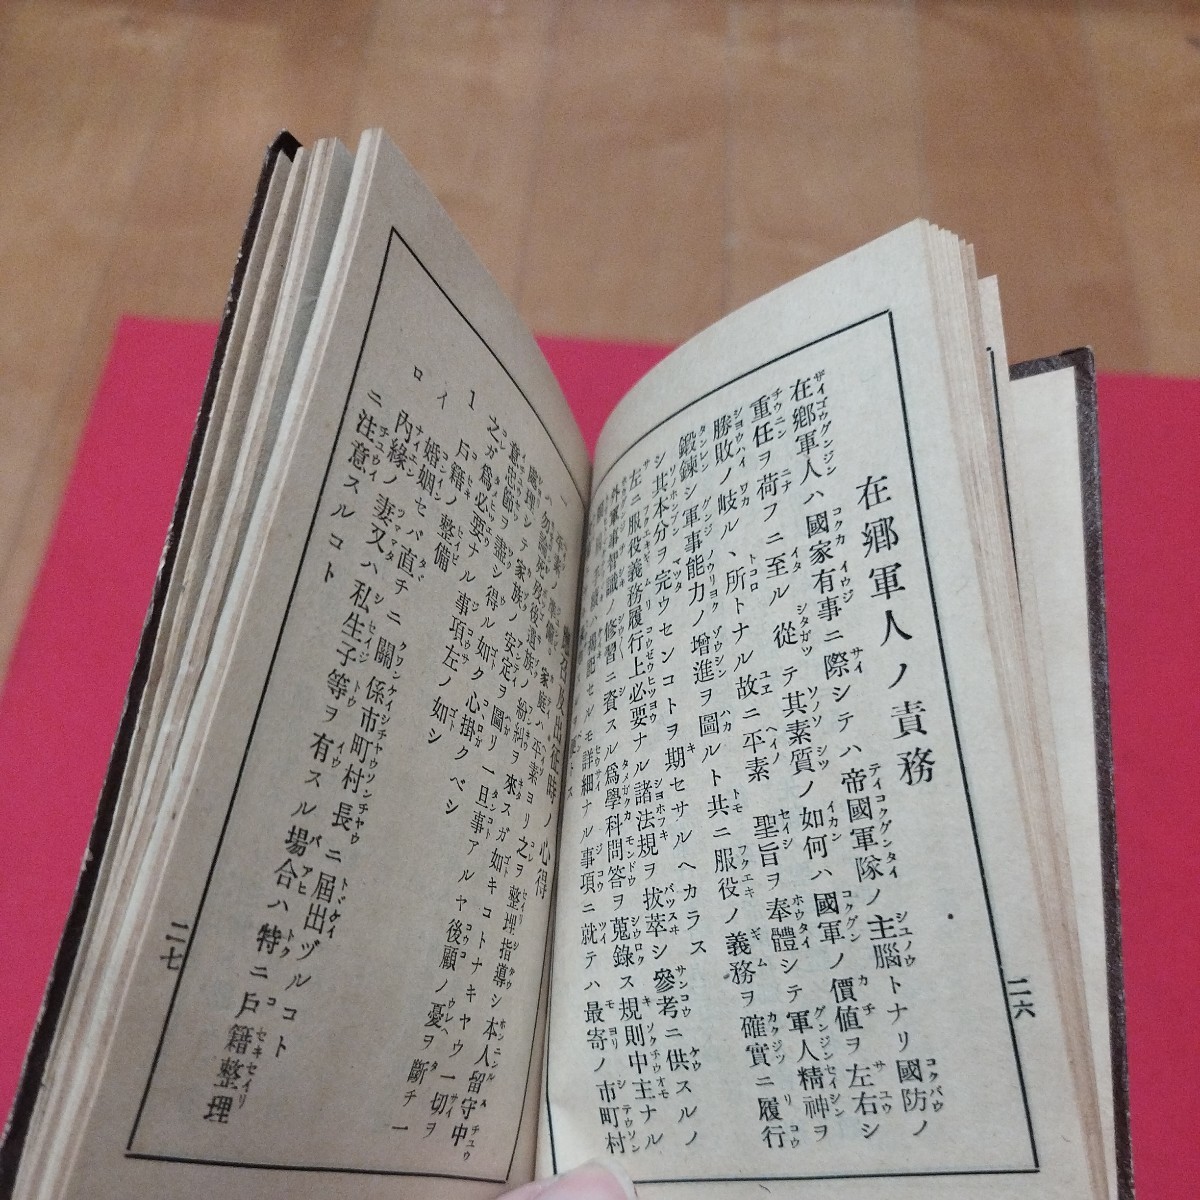 在鄕軍人ノ責務
在鄕軍人ハ國家有事ニ際シテハ帝國軍隊ノ主腦トナリ國防ノ
重任ヲ荷フニ至ル從テ其素質ノ如何ハ國軍ノ價値ヲ左右シ
勝敗ノ岐ル、所トナル故ニ平素 聖旨ヲ奉體シテ軍人精神ヲ
鍛鍊シ軍事能力ノ增進ヲ圖ルト共ニ服役ノ義務ヲ確實ニ履行
シ其本分ヲ完ウセンコトヲ期セサルヘカラス
左ニ服役義務履行上必要ナル諸法規ヲ拔萃シ參考ニ供スルノ
外軍事智識ノ修習ニ資スル爲學科問答ヲ蒐錄ス規則中主ナル
揭記セルモ詳細ナル事項ニ就テハ最寄ノ市町村
二六
應召及出征時ノ心得
家庭ハ平素ヨリ之ヲ整理指導シ本人留守中
ハ勿論死歿後遺族ノ紛糾ヲ來スガ如キコトナキヤウ一切ヲ
處理シテ家族ノ安定ヲ圖リ一旦事アルヤ後顧ノ憂ヲ斷チ一
意忠節ヲ盡シ得ル如ク心掛クベシ
之ガ爲必要ナル事項左ノ如シ
1 戶籍ノ整備
イ 婚姻セバ直チニ關係市町村長ニ屆出ヅルコト
ロ 內緣ノ妻又ハ私生子等ヲ有スル場合ハ特ニ戶籍整理
ニ注意スルコト
二七